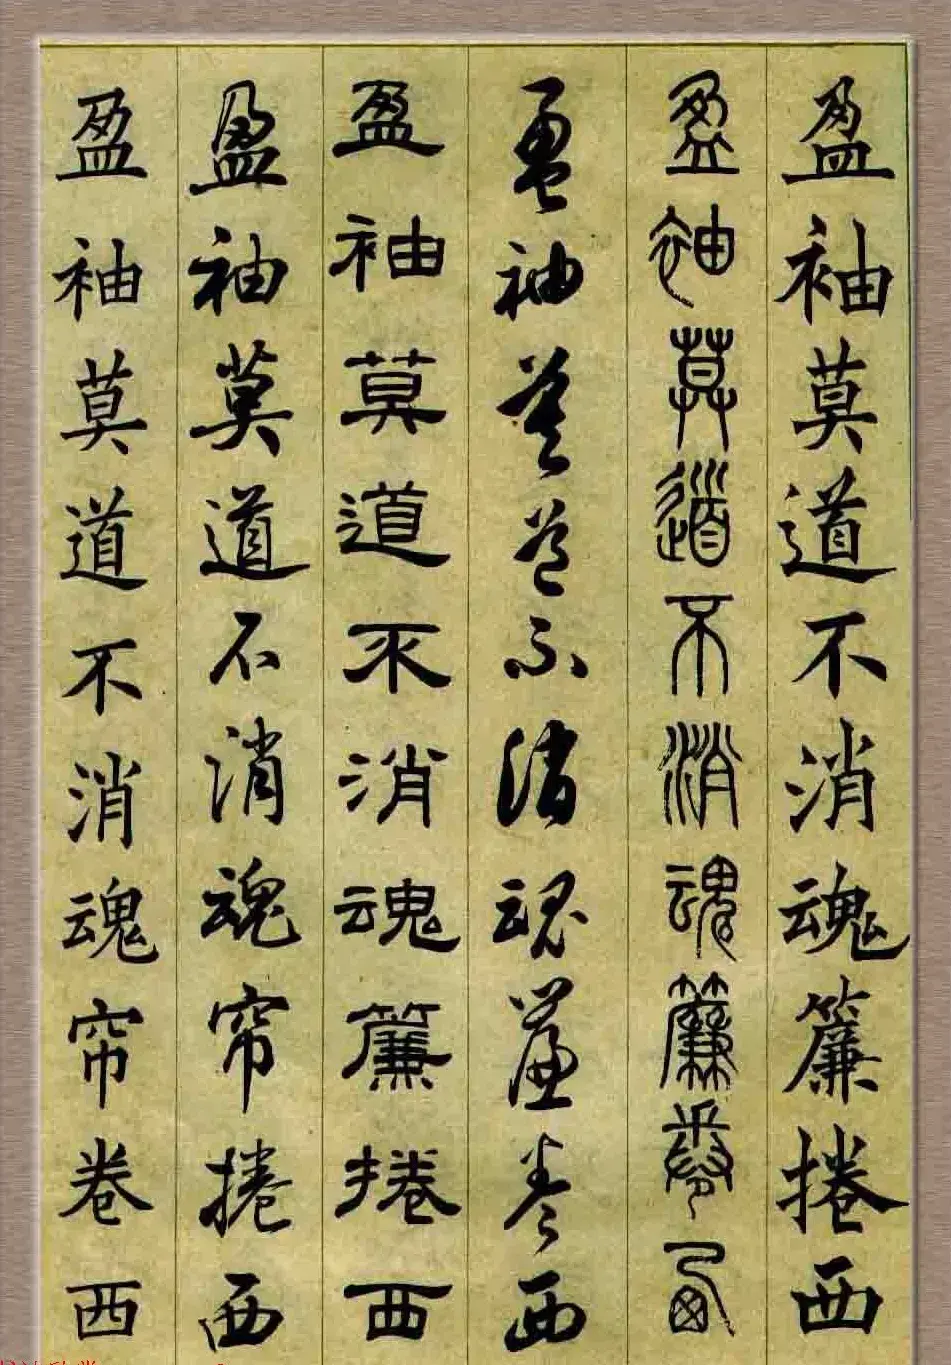 盈袖莫道不消魂簾捲西
盈袖莫道不消魂簾卷西
盈袖莫道不消魂簾卷西
盈袖莫道不消魂簾捲西
盈袖莫道不消魂帘捲西
盈袖莫道不消魂帘卷西